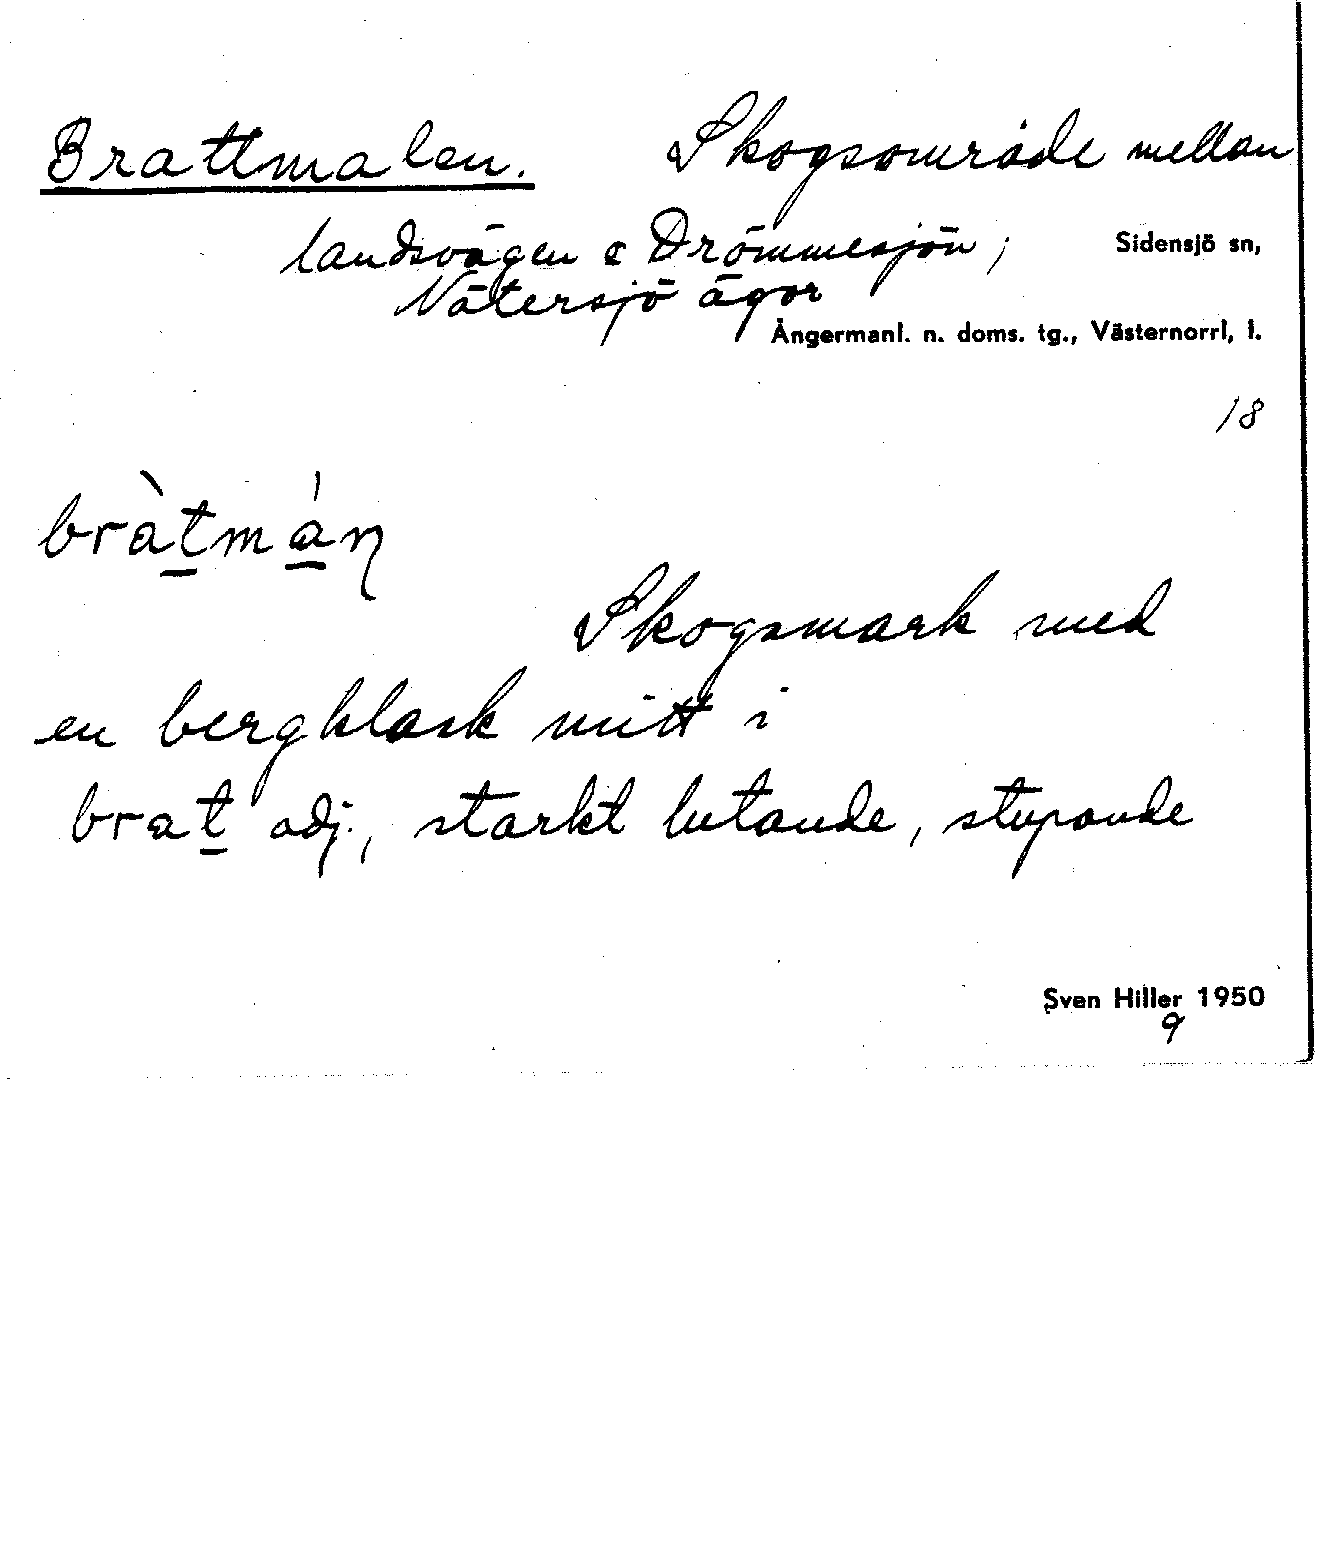 Brattmalen. Skogsområde mellan
landsvägen & Drömmesjön, Sidensjö sn,
Nätersjö ägor
Ångermanl. n. doms. tg., Västernorrl, l.
18
bràt̲má̲ƞ
Skogsmark med
en bergklack mitt i
brat̲ adj., starkt lutande, stupande
Sven Hiller 1950
9